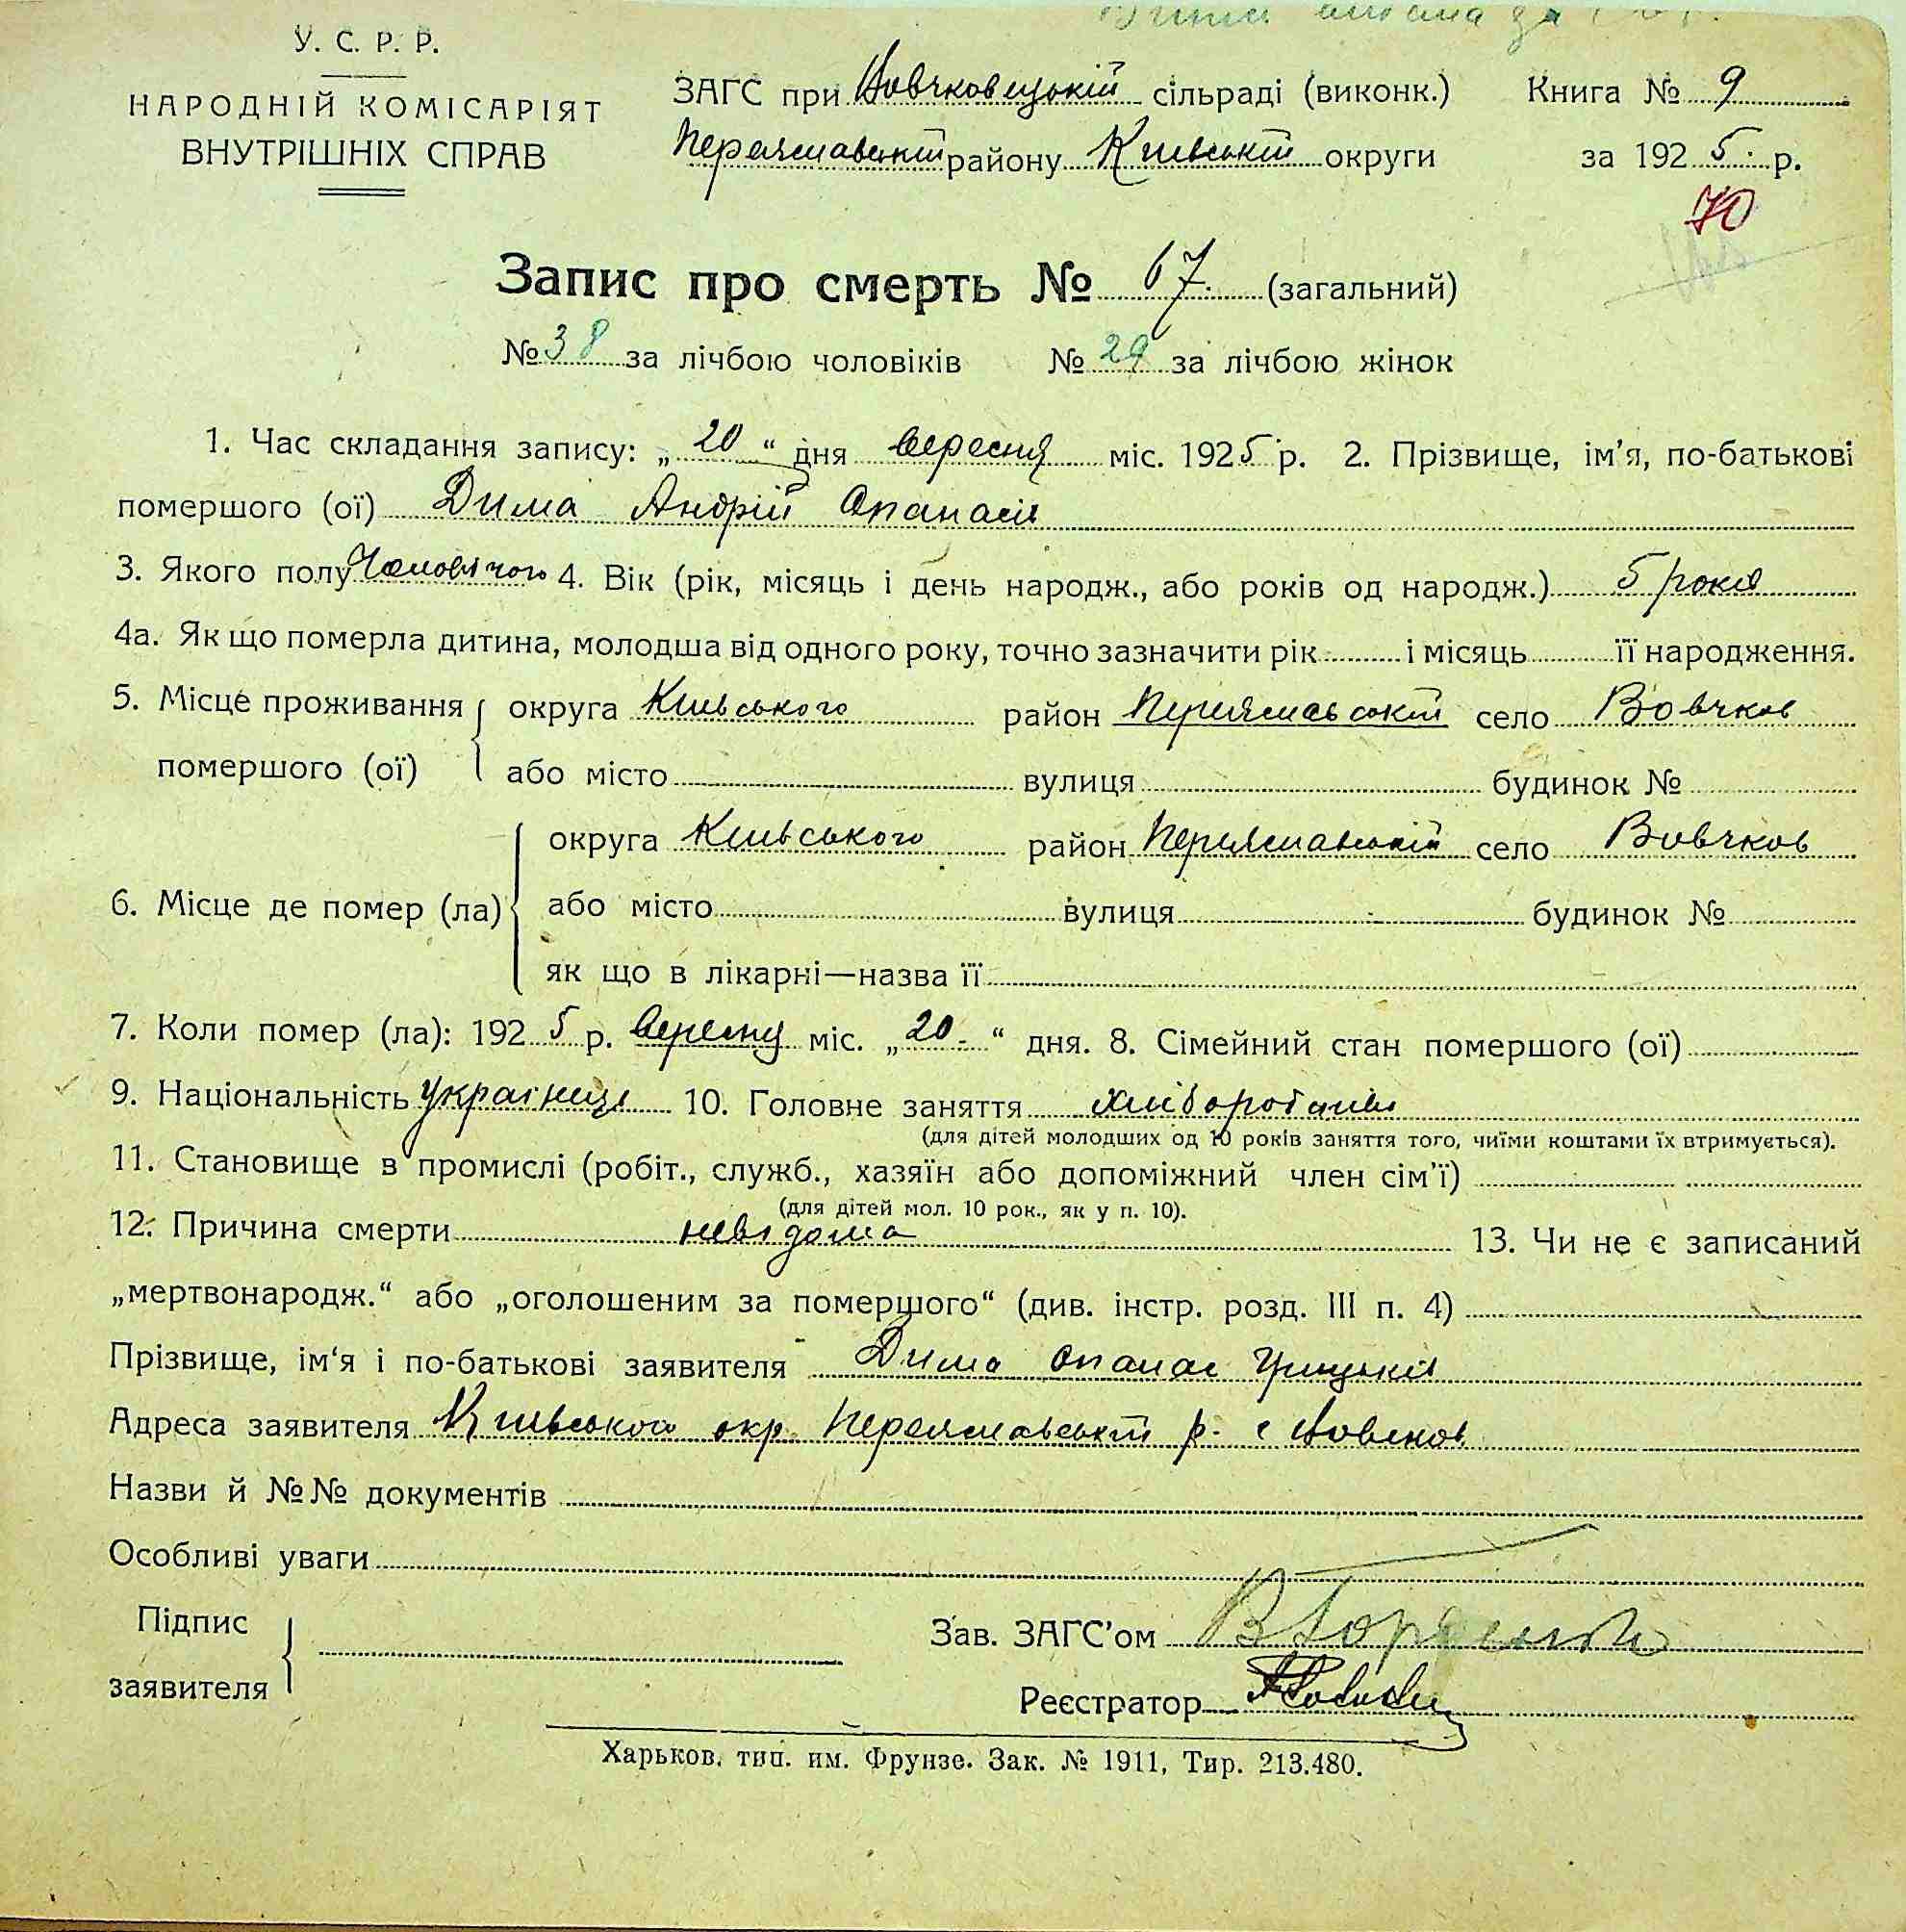 У. С. Р. Р.
НАРОДНІЙ КОМІСАРІЯТ
ВНУТРІШНІХ СПРАВ
ЗАГС при Вовчковецькій сільраді (виконк.)
Переяславській району Київській округи
Книга № 9
за 1925. р.
70
Запис про смерть № 67. (загальний)
№ 38 за лічбою чоловіків № 29 за лічбою жінок
1. Час складання запису: „20“ дня вересня міс. 1925 р. 2. Прізвище, ім'я, по-батькові
помершого (ої) Дима Андрій Опанасів
3. Якого полу Чоловічого 4. Вік (рік, місяць і день народж., або років од народж.) 5 років
4а. Як що померла дитина, молодша від одного року, точно зазначити рік і місяць її народження.
5. Місце проживання помершого (ої) округа Київського район Переяславській село Вовчков
або місто вулиця будинок №
6. Місце де помер (ла) округа Київського район Переяславській село Вовчков
або місто вулиця будинок №
як що в лікарні—назва її
7. Коли помер (ла): 1925 р. вересня міс. „20.“ дня. 8. Сімейний стан помершого (ої)
9. Національність 10. Головне заняття
(для дітей молодших од 10 років заняття того, чиїми коштами їх втримується).
11. Становище в промислі (робіт., служб., хазяїн або допоміжний член сім'ї)
(для дітей мол. 10 рок., як у п. 10).
12. Причина смерти невідома 13. Чи не є записаний
„мертвонародж.“ або „оголошеним за помершого“ (див. інстр. розд. III п. 4)
Прізвище, ім'я і по-батькові заявителя Дима Опанас Грицьків
Адреса заявителя Київського окр. Переяславській р. с Вовчков
Назви й №№ документів
Особливі уваги
Підпис заявителя
Зав. ЗАГС'ом
Реєстратор
Харьков, тип. им. Фрунзе. Зак. № 1911, Тир. 213.480.